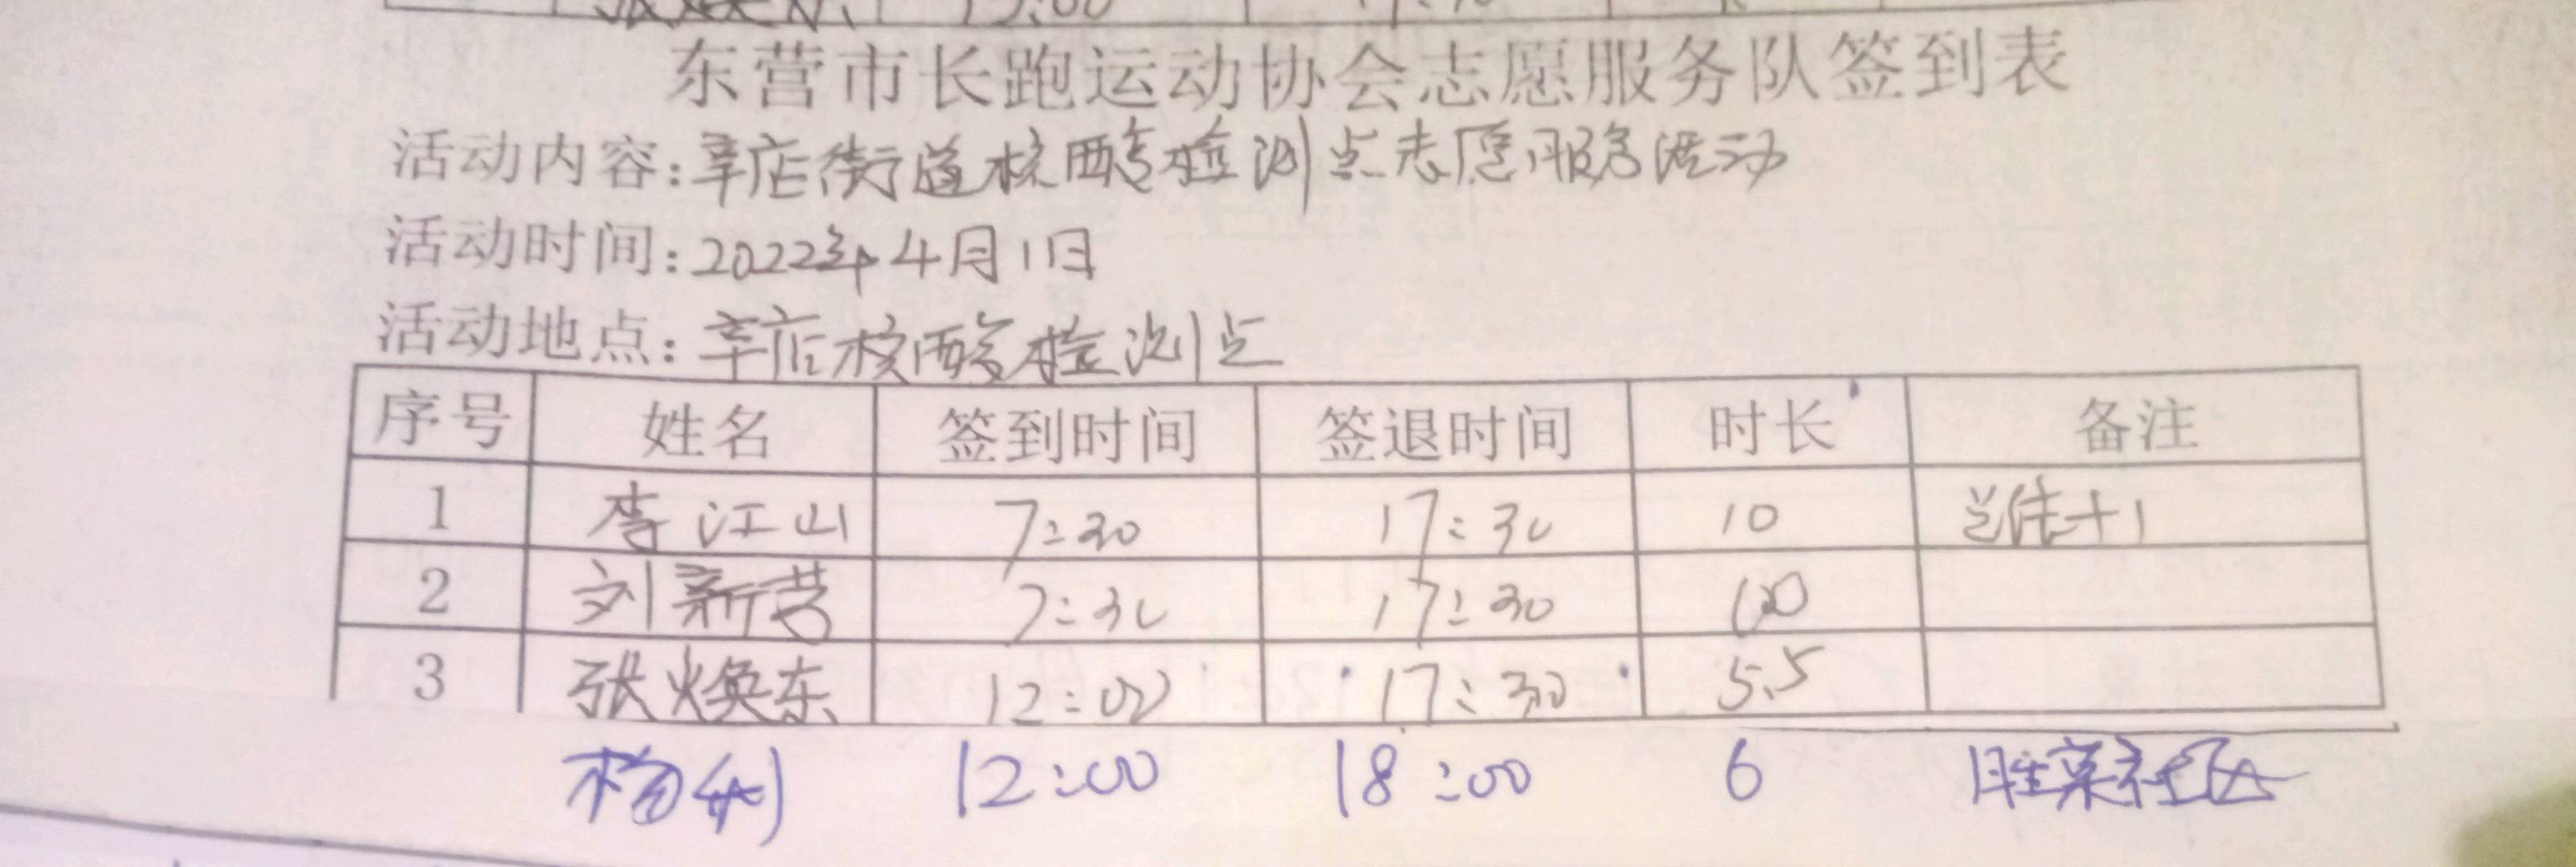 15:00
东营市长跑运动协会志愿服务队签到表
活动内容:辛店街道核酸检测点志愿服务活动
活动时间:2022年4月1日
活动地点:辛店核酸检测点
序号 姓名 签到时间 签退时间 时长 备注
1 李江山 7:30 17:30 10 +1
2 刘新芳 7:30 17:30 10
3 张焕东 12:00 17:30 5.5
杨 12:00 18:00 6 社区